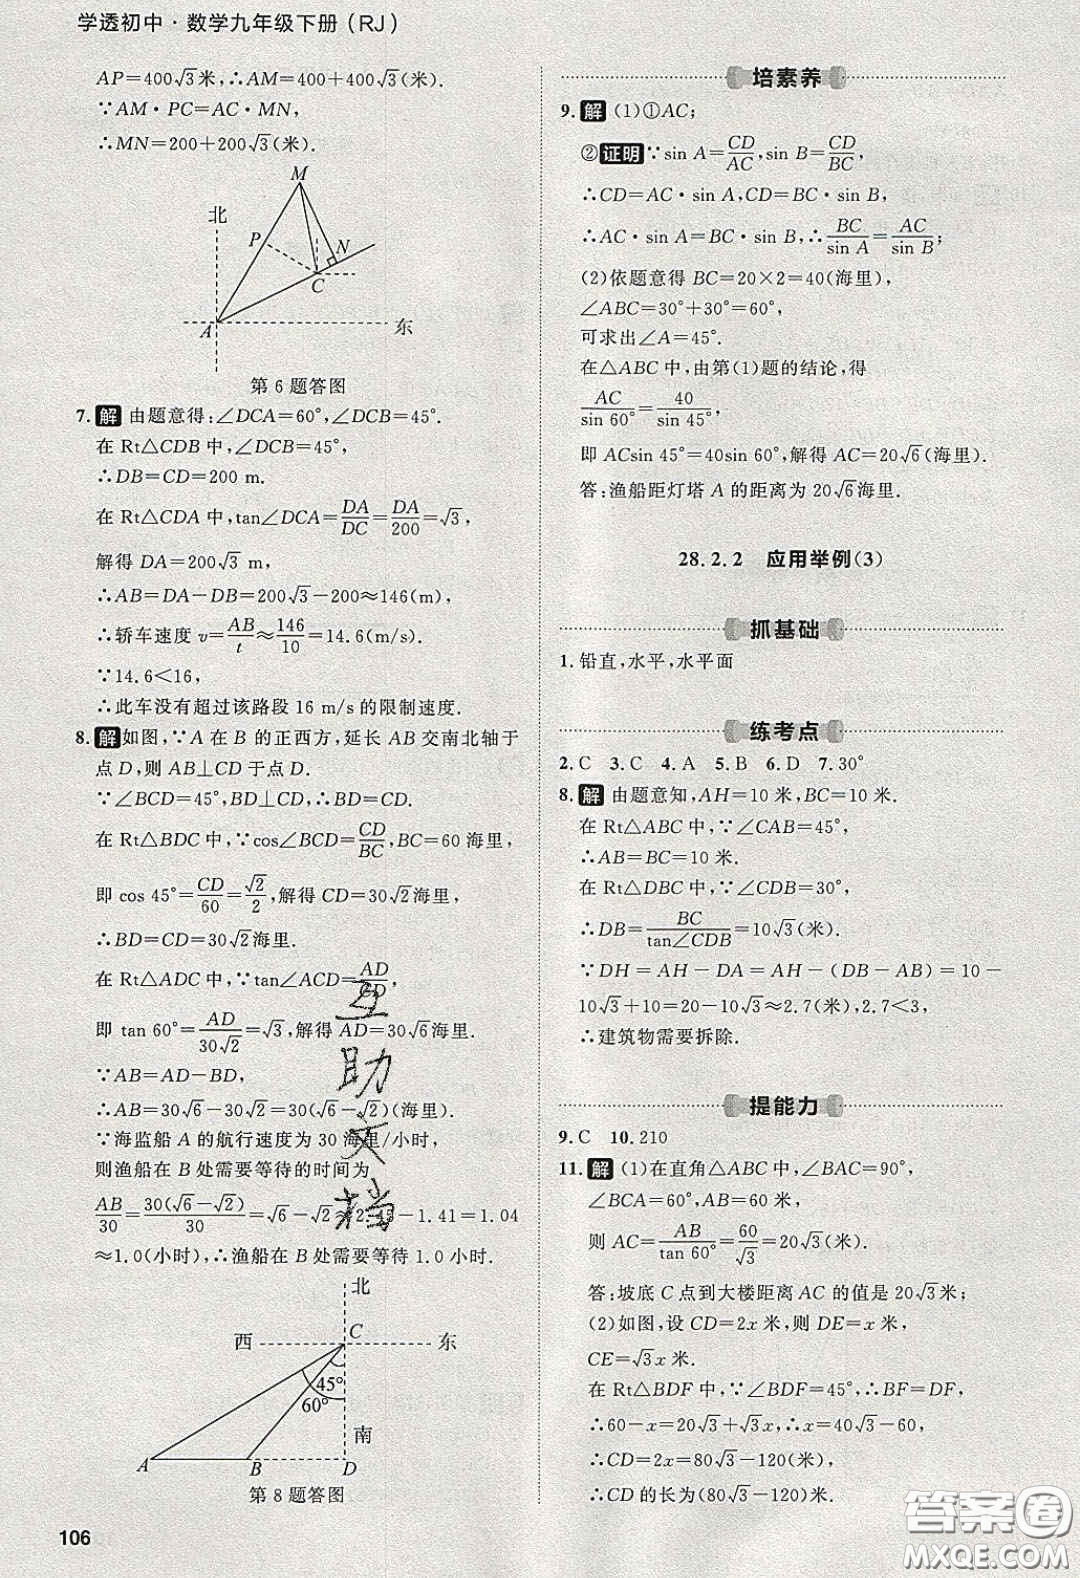 学透初中·数学九年级下册(RJ)
AP=400√3米,∴AM=400+400√3(米).
∵AM·PC=AC·MN,
∴MN=200+200√3(米).
M
北
P
N
C
A
东
第6题答图
7. 解 由题意得:∠DCA=60°,∠DCB=45°.
在 Rt△CDB 中,∠DCB=45°,
∴DB=CD=200 m.
在 Rt△CDA 中,tan∠DCA=DA/DC=DA/200=√3,
解得 DA=200√3 m,
∴AB=DA-DB=200√3-200≈146(m),
∴轿车速度 v=AB/t≈146/10=14.6(m/s).
∵14.6<16,
∴此车没有超过该路段 16 m/s的限制速度.
8. 解 如图,∵A 在 B 的正西方,延长 AB交南北轴于
点 D,则 AB⊥CD 于点 D.
∵∠BCD=45°,BD⊥CD,∴BD=CD.
在 Rt△BDC 中,∵cos∠BCD=CD/BC,BC=60 海里,
即 cos 45°=CD/60=√2/2,解得 CD=30√2海里,
∴BD=CD=30√2海里.
在 Rt△ADC 中,∵tan∠ACD=AD/CD,
即 tan 60°=AD/30√2=√3,解得 AD=30√6海里.
∵AB=AD-BD,
∴AB=30√6-30√2=30(√6-√2)(海里).
∵海监船 A 的航行速度为 30 海里/小时,
则渔船在 B 处需要等待的时间为
AB/30=30(√6-√2)/30=√6-√2≈2.45-1.41=1.04
≈1.0(小时),∴渔船在 B 处需要等待 1.0 小时.
北
西
C
东
45°
60°
南
A
B
D
第8题答图
106
培素养
9. 解 (1)①AC;
②证明∵sin A=CD/AC,sin B=CD/BC,
∴CD=AC·sin A,CD=BC·sin B,
∴AC·sin A=BC·sin B,∴BC/sin A=AC/sin B;
(2)依题意得 BC=20×2=40(海里),
∠ABC=30°+30°=60°,
可求出∠A=45°.
在△ABC 中,由第(1)题的结论,得
AC/sin 60°=40/sin 45°,
即 ACsin 45°=40sin 60°,解得 AC=20√6(海里).
答:渔船距灯塔 A 的距离为 20√6海里.
28.2.2 应用举例(3)
抓基础
1. 铅直,水平,水平面
练考点
2. C 3. C 4. A 5. B 6. D 7. 30°
8. 解 由题意知,AH=10米,BC=10 米.
在 Rt△ABC 中,∵∠CAB=45°,
∴AB=BC=10米.
在 Rt△DBC 中,∵∠CDB=30°,
∴DB=BC/tan∠CDB=10√3(米).
∵DH=AH-DA=AH-(DB-AB)=10-
10√3+10=20-10√3≈2.7(米),2.7<3,
∴建筑物需要拆除.
提能力
9. C 10. 210
11. 解 (1)在直角△ABC 中,∠BAC=90°,
∠BCA=60°,AB=60米,
则 AC=AB/tan 60°=60/√3=20√3(米).
答:坡底 C 点到大楼距离 AC 的值是 20√3米;
(2)如图,设 CD=2x 米,则 DE=x 米,
CE=√3x 米.
在 Rt△BDF 中,∵∠BDF=45°,∴BF=DF,
∴60-x=20√3+√3x,∴x=40√3-60,
∴CD=2x=80√3-120(米),
∴CD的长为(80√3-120)米.
互
助
文
档
答案圈
MXQE.COM